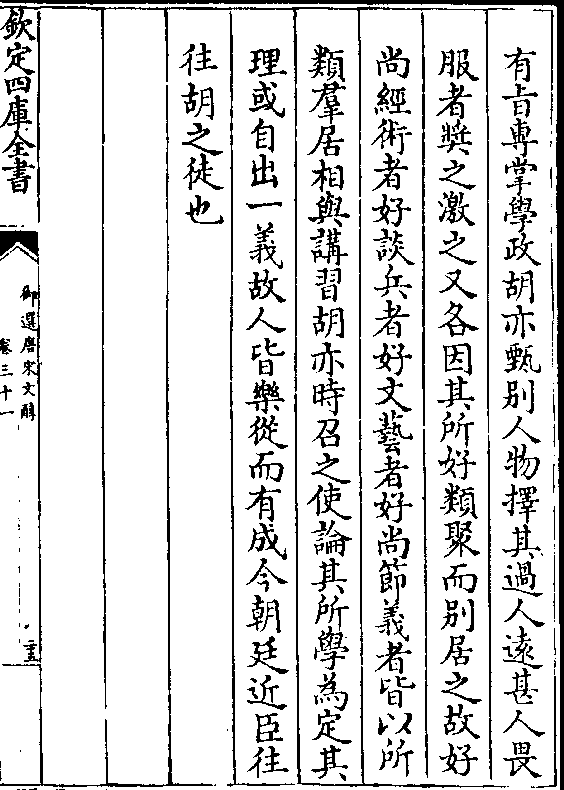 有旨專掌學政胡亦甄别人物擇其過人遠甚人畏
服者奬之激之又各因其所好類聚而别居之故好
尚經術者好談兵者好文藝者好尚節義者皆以所
類羣居相與講習胡亦時召之使論其所學為定其
理或自出一義故人皆樂從而有成今朝廷近臣往
往胡之徒也
欽定四庫全書
御選唐宋文醇
卷三十一